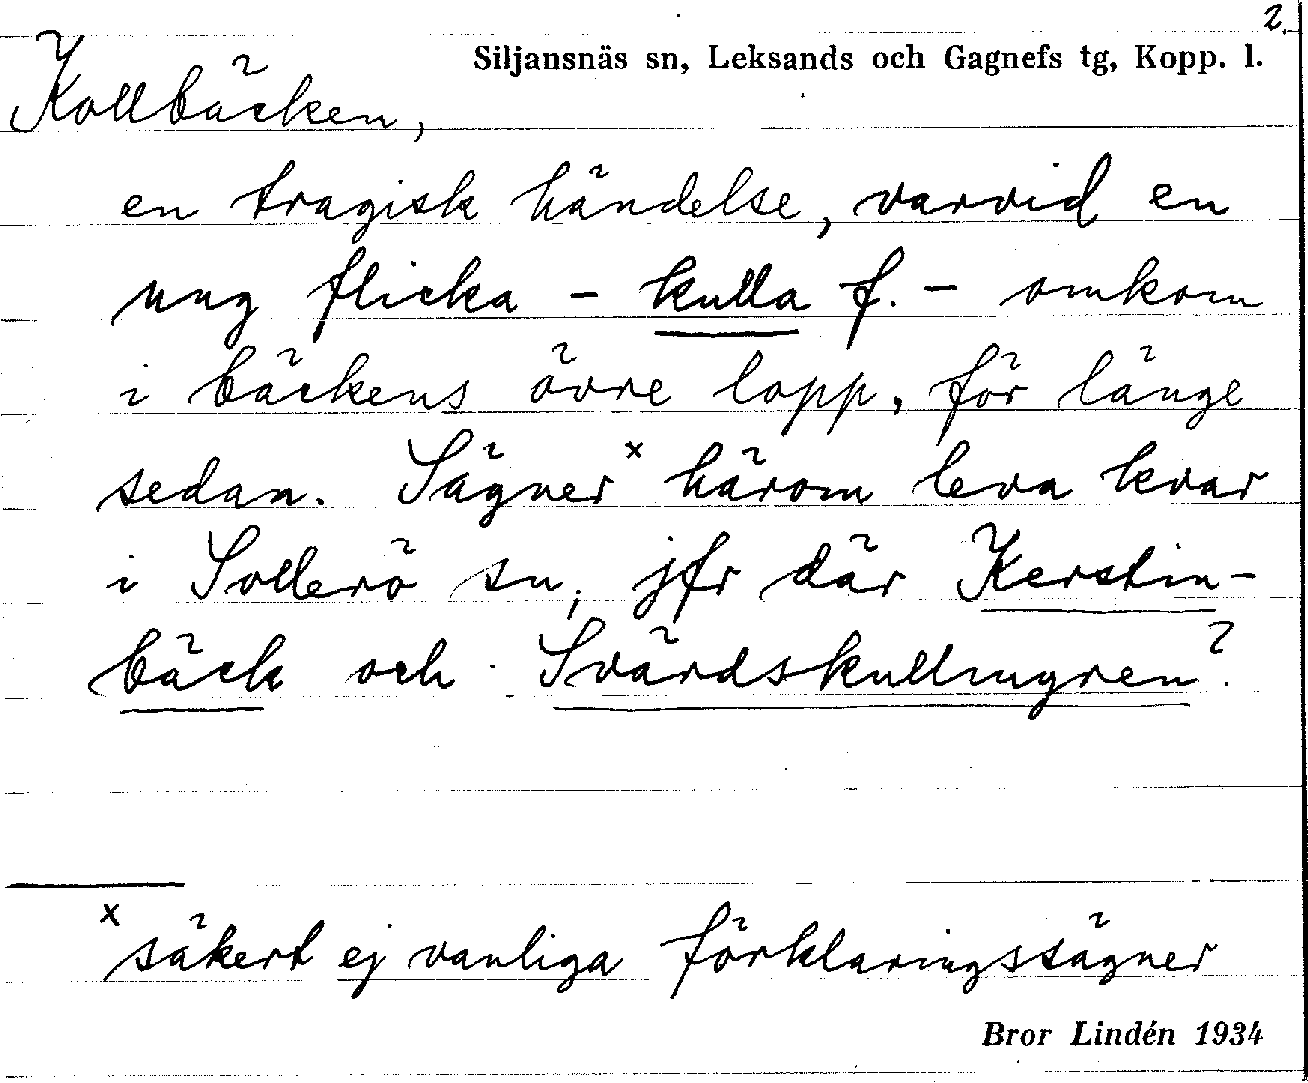 2.
Siljansnäs sn, Leksands och Gagnefs tg, Kopp. l.
Kollbäcken,
en tragisk händelse, varvid en
ung flicka - kulla f. - omkom
i bäckens övre lopp, för länge
sedan. Sägner x härom leva kvar
i Sollerö sn, jfr där Kerstin-
bäck och Svärdskullmyren?.
x säkert ej vanliga förklaringssägner
Bror Lindén 1934